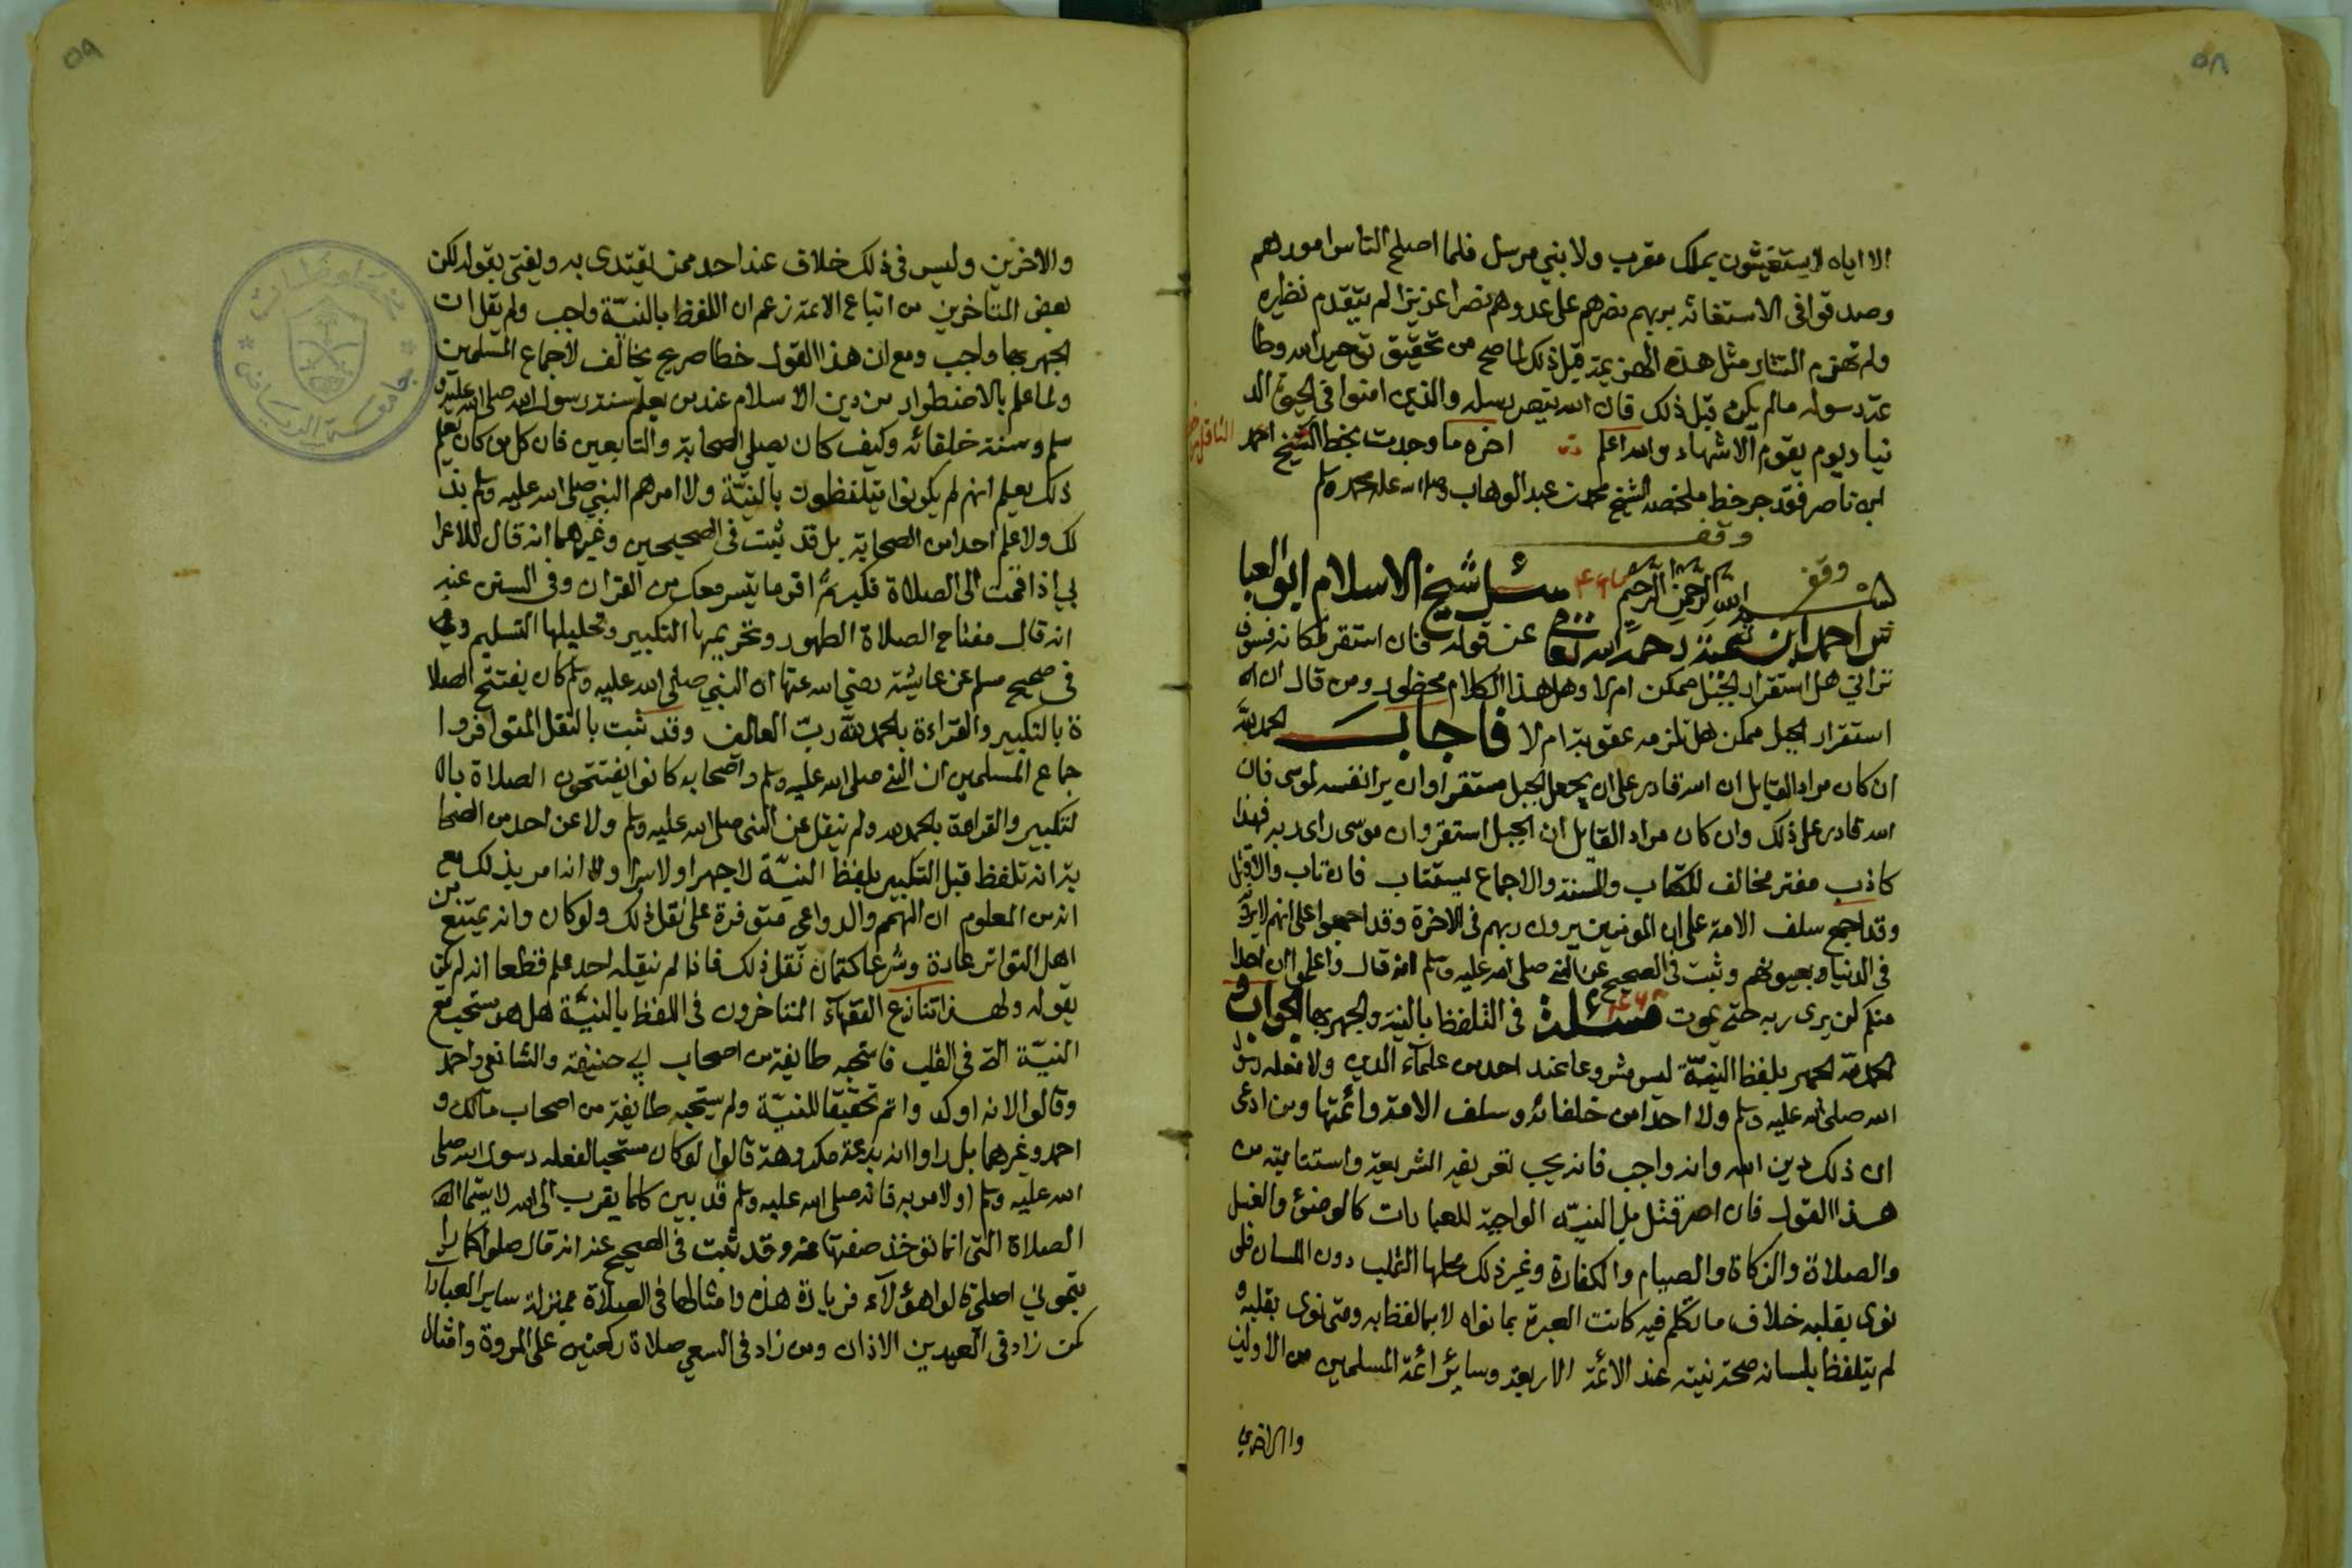 ٥٨
الا اياه لا يستغيثون بملك مقرب ولا بني مرسل فلما اصلح الناس امورهم
وصدقوا في الاستغاثه بربهم نصرهم على عدوهم نصرا عزيزا لم يتقدم نظيره
ولم تهزم التتار مثل هذه الهزيمة قبل ذلك لما صح من تحقيق توحيد الله وطا
عة رسوله مالم يكن قبل ذلك فان الله ينصر رسله والذين امنوا في الحيوة الد
نيا ويوم يقوم الاشهاد والله اعلم اخره ما وجدت بخط الشيخ احمد
ابن ناصر فقد جر خط ملخصه الشيخ محمد بن عبد الوهاب وصلى الله على محمد وسلم
وقف
وقف
بسم الله الرحمن الرحيم سئل شيخ الاسلام ابو العبا
س احمد ابن تيمية رحمه الله تعا عن قوله فان استقر مكانه فسوف
تراني هل استقرار الجبل ممكن ام لا وهل هذا الكلام محظور ومن قال ان
استقرار الجبل ممكن هل تلزمه عقوبة ام لا فاجاب الحمد لله
ان كان مراد القايل ان الله قادر على ان يجعل الجبل مستقرا وان يرا نفسه لموسى فان
الله قادر على ذلك وان كان مراد القايل ان الجبل استقر وان موسى راى ربه فهذا
كاذب مفتر مخالف للكتاب والسنة والاجماع يستتاب فان تاب والا قتل
وقد اجمع سلف الامة على ان المومنين يرون ربهم في الاخرة وقد اجمعوا على انهم لا يرونه
في الدنيا بعيونهم وثبت في الصحيح عن النبي صلى الله عليه وسلم انه قال واعلموا ان احدا
منكم لن يرى ربه حتى يموت مسئلة في التلفظ بالنية والجهر بها الجواب
الحمد لله الجهر بلفظ النية ليس مشروعا عند احد من علماء الدين ولا فعله رسول
الله صلى الله عليه وسلم ولا احد من خلفائه وسلف الامة وائمتها ومن ادعى
ان ذلك دين الله وانه واجب فانه يجب تعريفه الشريعة واستتابته من
هذا القول فان اصر قتل بل النية الواجبة للعبادات كالوضئ والغسل
والصلاة والزكاة والصيام والكفارة وغير ذلك محلها القلب دون اللسان فلو
نوى بقلبه خلاف ما تكلم فيه كانت العبرة بما نواه لا بما لفظ به ومتى نوى بقلبه و
لم يتلفظ بلسانه صحة نيته عند الائمة الاربعة وسائر ائمة المسلمين من الاولين
والاخرين
٥٩
والاخرين وليس في ذلك خلاف عند احد ممن يقتدى به ويفتى بقوله لكن
بعض المتاخرين من اتباع الائمة زعم ان اللفظ بالنية واجب ولم يقل ان
الجهر بها واجب ومع ان هذا القول خطا صريح مخالف لاجماع المسلمين
ولما علم بالاضطوار من دين الاسلام عند من يعلم سنة رسول الله صلى الله عليه و
سلم وسنة خلفائه وكيف كان يصلي الصحابة والتابعين فان كل من كان يعلم
ذلك يعلم انهم لم يكونوا يتلفظون بالنية ولا امرهم النبي صلى الله عليه وسلم بذا
لك ولا علم احدا من الصحابة بل قد ثبت في الصحيحين وغيرهما انه قال للاعرا
بي اذا اقمت الى الصلاة فكبر ثم اقر ما تيسر معك من القران وفي السنن عنه
انه قال مفتاح الصلاة الطهور وتحريمها التكبير وتحليلها التسليم
في صحيح مسلم عن عايشة رضي الله عنها ان النبي صلى الله عليه وسلم كان يفتتح الصلا
ة بالتكبير والقراءة بالحمد لله رب العالمين وقد ثبت بالنقل المتوافر وا
جماع المسلمين ان النبي صلى الله عليه وسلم واصحابه كانوا يفتتحون الصلاة باا
لتكبير والقراءة بالحمد لله ولم ينقل عن النبي صلى الله عليه وسلم ولا عن احد من الصحا
بة انه تلفظ قبل التكبير بلفظ النية لا جهرا ولا سرا ولا انه امر بذلك مع
انه من المعلوم ان الهمم والدواعي متوفرة على نقل ذلك ولو كان وانه يمتنع من
اهل التواتر عادة وشرعا كتمان نقل ذلك فاذا لم ينقله احد علم قطعا انه لم يكن
يقوله ولهذا تنازع الفقهاء المتاخرون في اللفظ بالنية هل هو مستحب مع
النية التى في القلب فاستحبه طايفة من اصحاب ابي حنيفة والشافعي واحمد
وقالوا لانه اوكد واتم تحقيقا للنية ولم يستحبه طايفة من اصحاب مالك و
احمد وغيرهما بل راوا انه بدعة مكروهة قالوا لو كان مستحبا لفعله رسول الله صلى
الله عليه وسلم او لامر به فانه صلى الله عليه وسلم قد بين كلما يقرب الى الله لا سيما
الصلاة التي انما تؤخذ صفتها عنه وقد ثبت في الصحيح عنه انه قال صلوا كما را
يتموني اصلي قالوا هؤلاء فزيادة هذه وامثالها في الصلاة بمنزلة ساير العبادا
كمن زاد في العيدين الاذان ومن زاد في السعي صلاة ركعتين على المروة وامثال
جامعة الرياض